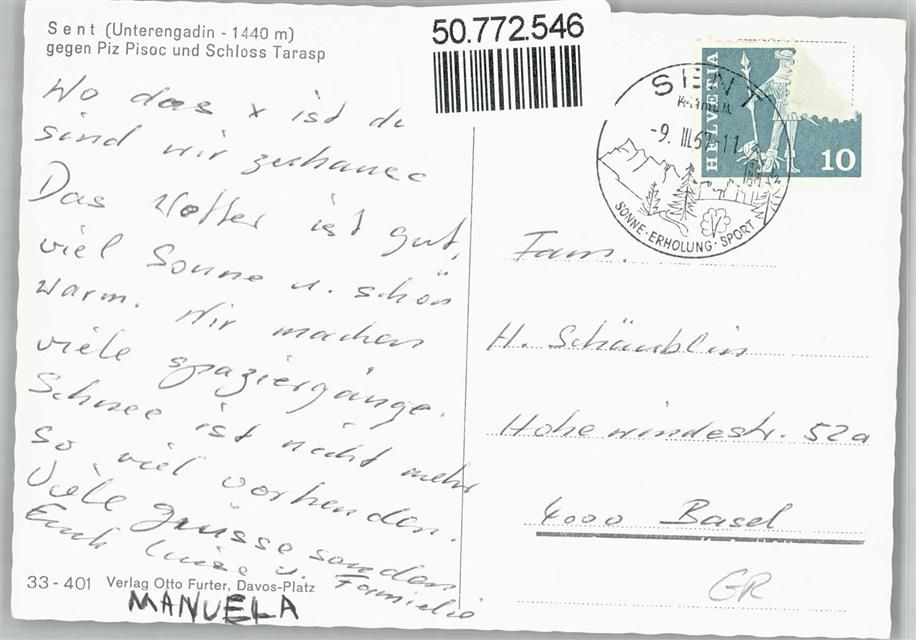 Sent (Unterengadin - 1440 m)
gegen Piz Pisoc und Schloss Tarasp
50.772.546
Wo das x ist da
sind wir zuhause
Das Wetter ist gut,
viel Sonne u. schön
warm. Wir machen
viele spaziergänge.
Schnee ist nicht mehr
so viel vorhenden.
Viele grüsse senden
Euch Luise u. Familie
MANUELA
33-401 Verlag Otto Furter, Davos-Platz
HELVETIA
10
SENT
-9. III.67-11
SONNE·ERHOLUNG·SPORT
Fam.
H. Schäublin
Hohewindestr. 52a
4000 Basel
GR